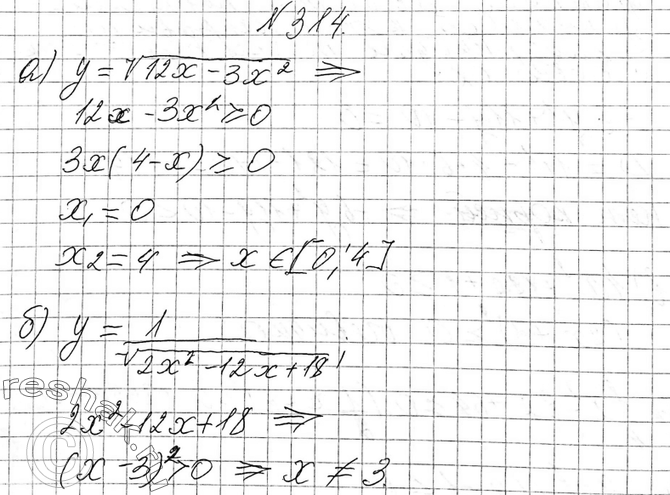 № 314.
а) y = √(12x − 3x²) ⇒
12x − 3x² ≥ 0
3x(4 − x) ≥ 0
x₁ = 0
x₂ = 4 ⇒ x ∈ [0; 4]
б) y = 1/√(2x² − 12x + 18)
2x² − 12x + 18 ⇒
(x − 3)² > 0 ⇒ x ≠ 3
reshak.ru